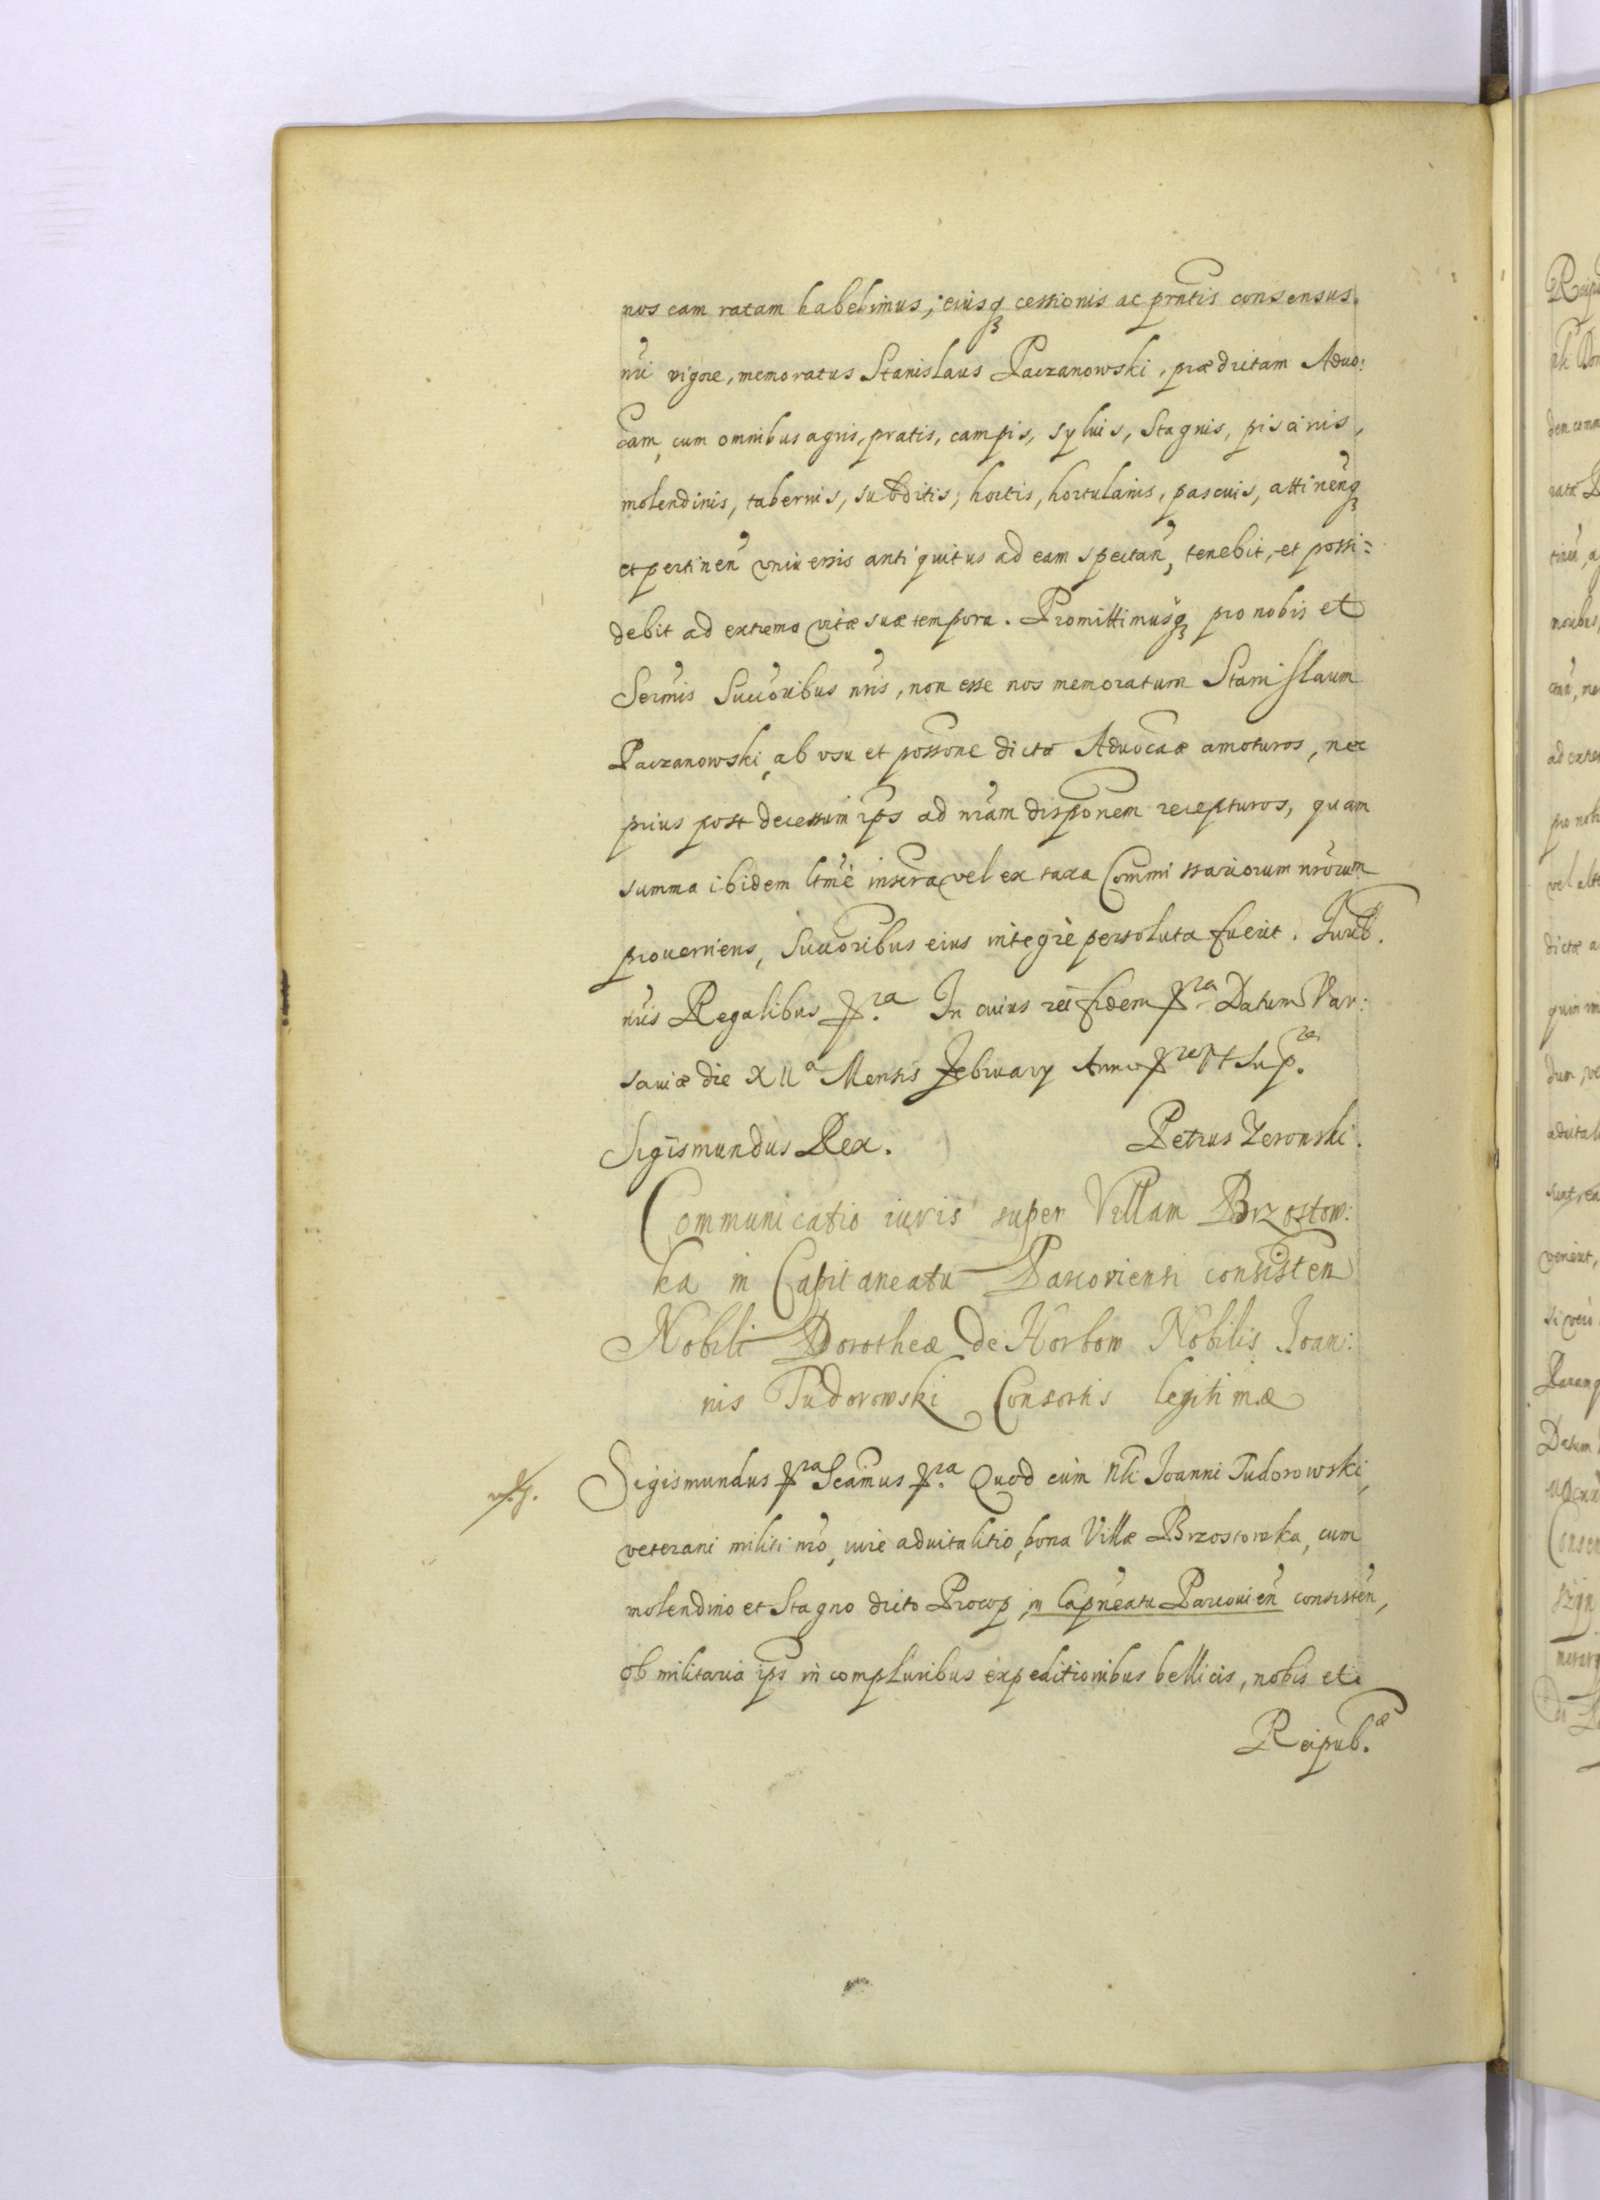 nos eam ratam habebimus, eiusq cessionis ac prntis consensus
nri vigore, memoratus Stanislaus Paczanowski, prædictam Aduo:
cam, cum omnibus agris, pratis, campis, syluis, stagnis, piscinis,
molendinis, tabernis, subditis, hortis, hortulanis, pascuis, attinenq
et pertinen vniuersis antiquitus ad eam spectan, tenebit, et possi=
debit ad extrema vitæ suæ tempora. Promittimusq pro nobis et
Sermis Succoribus nris, non esse nos memoratum Stanislaum
Paczanowski, ab vsu et possone dictæ Aduocaæ amoturos, nec
prius post decessum ips ad nram disponem recepturos, quam
summa ibidem ltme inscra vel ex taxa Commissariorum nrorum
proueniens, Succoribus eius integrè persoluta fuerit. Jurib.
nris Regalibus pra In cuius rei fidem pra Datum Var:
sauiæ die XII a Mensis February Anno pre vt Sup.ra
Sigismundus Rex. Petrus Zeronski.
Communicatio iuris super Villam Brzostow:
ka in Capitaneatu Parcoviensi consisten
Nobili Dorotheæ de Horbow Nobilis Joan:
nis Tudorowski Consortis legitimæ
Sigismundus pra Scamus pra Quod cum Nli Joanni Tudorowski,
veterani militi nro, iure aduitalitio, bona Villæ Brzostowka, cum
molendino et Stagno dicto Procop, in Capneatu Parcouien consisten,
ob militaria ips in compluribus expeditionibus bellicis, nobis et
Reipub.æ